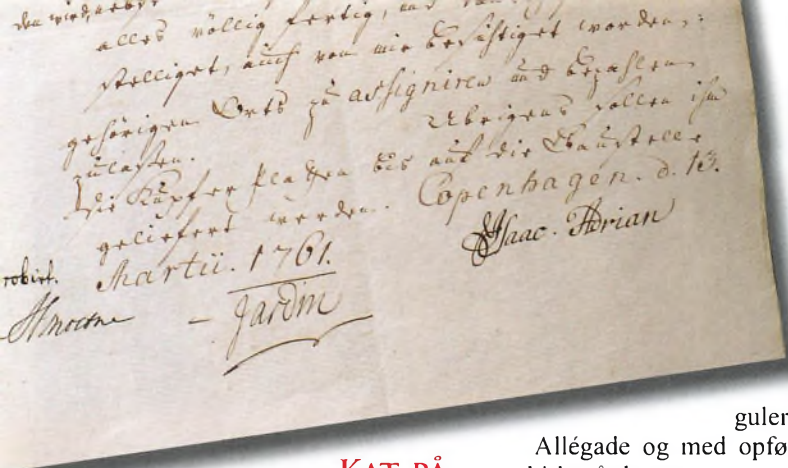 den wird,
alles völlig fertig, und
stelliget, auch von mir besichtiget worden,
gehörigen Orts zu assigniren und bezahlen
zulassen. Übrigens sollen ihm
die Kupfer Platten bis auf die Baustelle
geliefert werden. Copenhagen. d. 13.
Martii. 1761.
Isaac. Adrian
robirt.
Jardin
KAT PÅ
guler
Allégade og med opfø